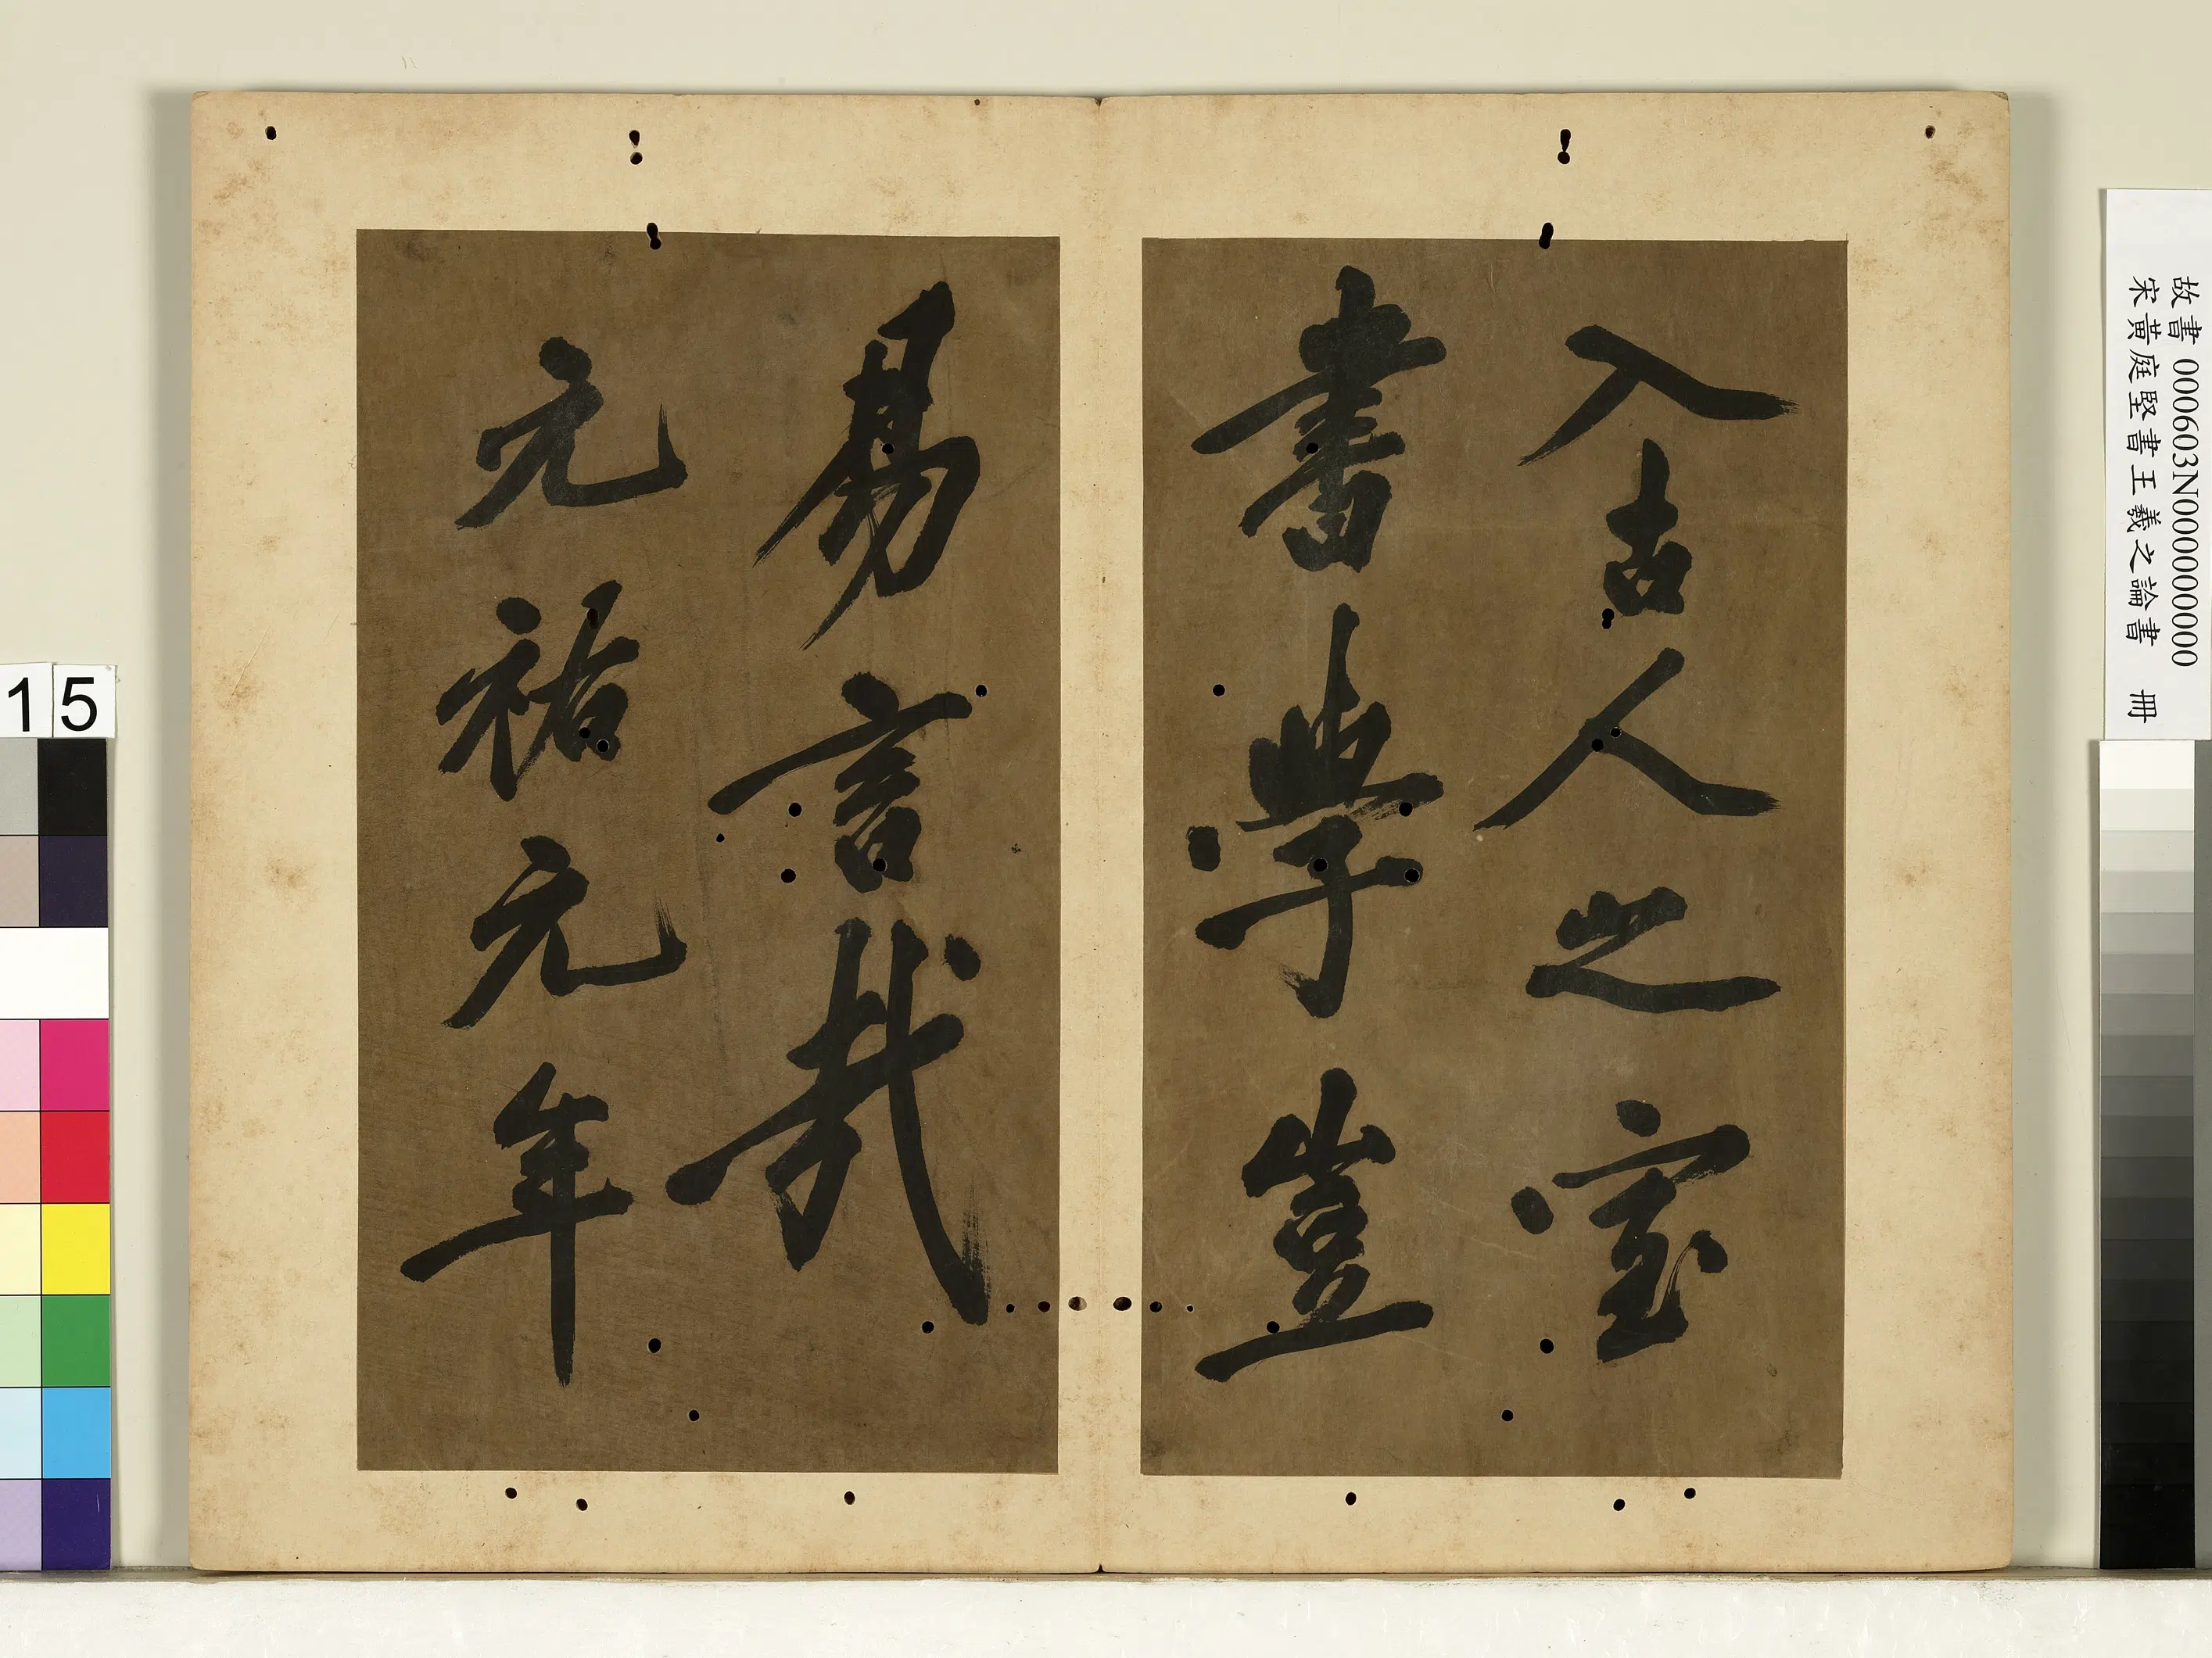 入古人之室
書學豈
易言哉
元祐元年
故書 000603N000000000
宋黃庭堅書王羲之論書 冊
15